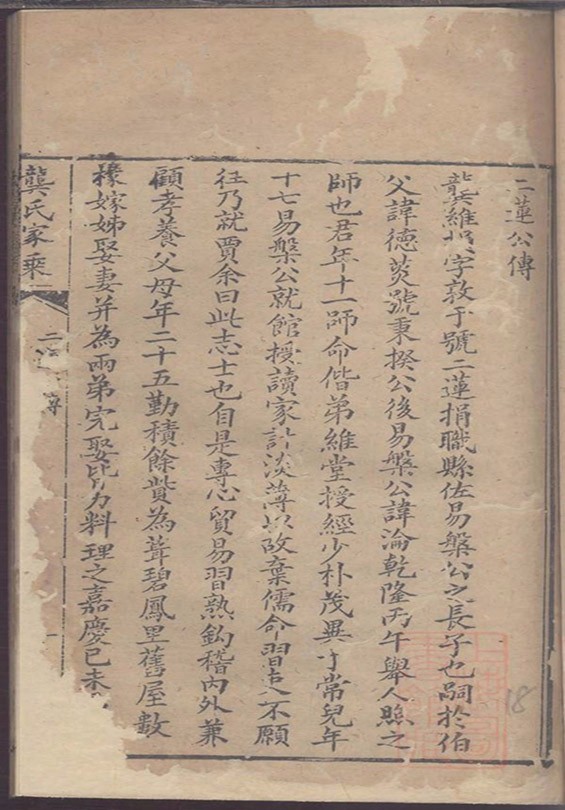 二蓮公傳
龔維 字敦于號二蓮捐職縣佐易槃公之長子也嗣於伯
父諱德荧號秉揆公後易槃公諱淪乾隆丙午舉人照之
師也君年十一師命偕弟維堂授經少朴茂異于常兒年
十七易槃公就館授讀家計淡薄 故棄儒命習 不願
往乃就賈余曰此志士也自是專心貿易習熟鈎稽內外兼
顧孝養父母年二十五勤積餘貲為葺碧鳳里舊屋數
椽嫁姊娶妻并為兩弟完娶 力料理之嘉慶己未
龔氏家乘
二 傳
一
18